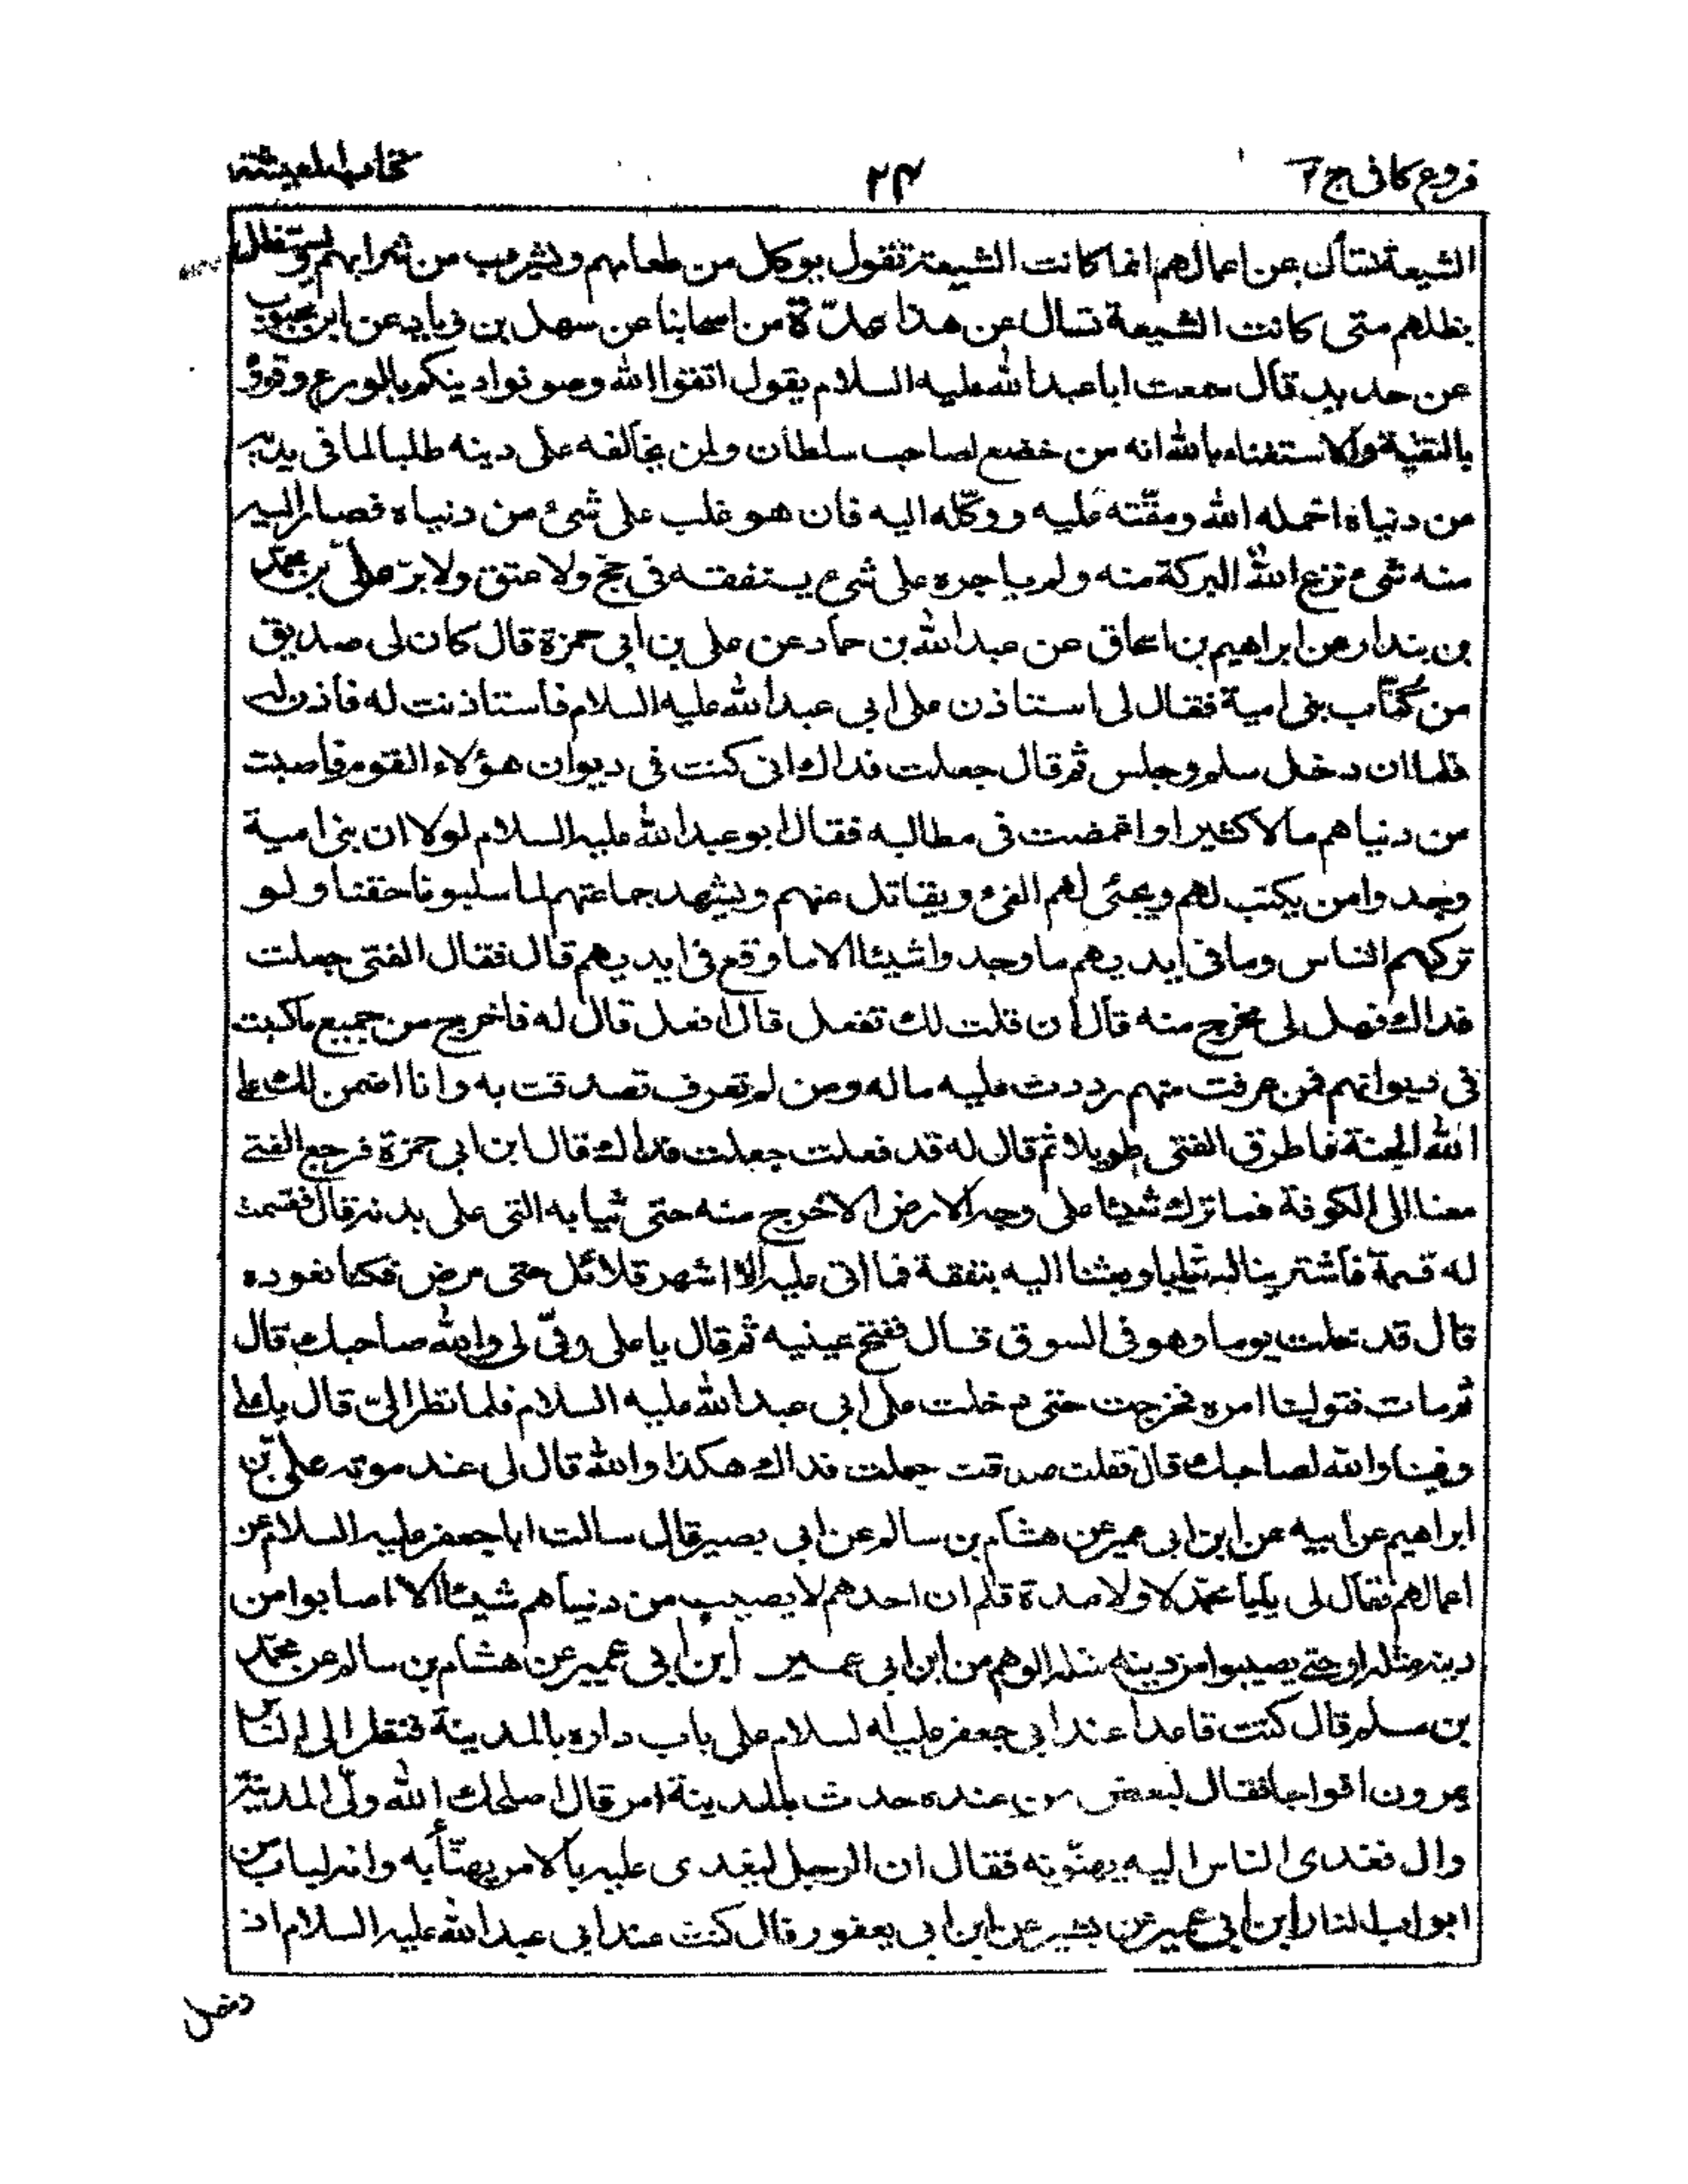 فروع كافى ج٢
٢٤
كتاب المعيشة
الشيعة تسأل عن اعمالهم انما كانت الشيعة تقول يوكل من طعامهم ويشرب من شرابهم ويستظل
بظلهم متى كانت الشيعة تسال عن هذا عدّة من اصحابنا عن سهل بن زياد عن ابن محبوب
عن حديد قال سمعت ابا عبد الله عليه السلام يقول اتقوا الله وصونوا دينكم بالورع وقووه
بالتقية والاستغناء بالله انه من خضع لصاحب سلطان ولمن يخالفه على دينه طلبا لما فى يديه
من دنياه اخمله الله ومقّته عليه ووكّله اليه فان هو غلب على شىء من دنياه فصار اليه
منه شىء نزع الله البركة منه ولم ياجره على شىء ينفقه فى حج ولا عتق ولا برّ علىّ بن محمّد
بن بندار عن ابراهيم بن اسحاق عن عبد الله بن حماد عن على بن ابى حمزة قال كان لى صديق
من كُتّاب بنى امية فقال لى استاذن على ابى عبد الله عليه السلام فاستاذنت له فاذن له
فلما ان دخل سلم وجلس ثم قال جعلت فداك انى كنت فى ديوان هؤلاء القوم فاصبت
من دنياهم مالا كثيرا واغمضت فى مطالبه فقال ابو عبد الله عليه السلام لولا ان بنى امية
وجدوا من يكتب لهم ويجئى لهم الفىء ويقاتل عنهم ويشهد جماعتهم لما سلبونا حقنا ولو
تركهم الناس وما فى ايديهم ما وجدوا شيئا الا ما وقع فى ايديهم قال فقال الفتى جعلت
فداك فهل لى مخرج منه قال ان قلت لك تفعل قال افعل قال له فاخرج من جميع ما كسبت
فى ديوانهم فمن عرفت منهم رددت عليه ماله ومن لم تعرف تصدقت به وانا اضمن لك على
الله الجنة فاطرق الفتى طويلا ثم قال له قد فعلت جعلت فداك قال ابن ابى حمزة فرجع الفتى
معنا الى الكوفة فما ترك شيئا على وجه الارض الا خرج منه حتى ثيابه التى على بدنه قال فقسمت
له قسمة فاشترينا له ثيابا وبعثنا اليه بنفقة فما اتى عليه الا اشهر قلائل حتى مرض فكنا نعوده
قال قد خلت يوما وهو فى السوق قال ففتح عينيه ثم قال يا على وفّى لى والله صاحبك قال
ثم مات فتولينا امره فخرجت حتى دخلت على ابى عبد الله عليه السلام فلما نظر الىّ قال يا على
وفينا والله لصاحبك قال فقلت صدقت جعلت فداك هكذا والله قال لى عند موته علىّ بن
ابراهيم عن ابيه عن ابن ابى عمير عن هشام بن سالم عن ابى بصير قال سالت ابا جعفر عليه السلام عن
اعمالهم فقال لى يا أبا محمّد لا ولا مدة قلم ان احدهم لا يصيب من دنياهم شيئا الا اصابوا من
دينه مثله او حتى يصيبوا من دينه مثله الوهم من ابن ابى عمير ابن ابى عمير عن هشام بن سالم عن محمّد
بن مسلم قال كنت قاعدا عند ابى جعفر عليه السلام على باب داره بالمدينة فنظر الى الناس
يمرون افواجا فقال لبعض من عنده حدث بالمدينة امر قال اصلحك الله ولّى المدينة
وال فغدى الناس اليه يهنّونه فقال ان الرجل ليغدى عليه بالامر يهنّأ به وانه لباب من
ابواب النار ابن ابى عمير عن بشير عن ابن ابى يعفور قال كنت عند ابى عبد الله عليه السلام اذ
دخل